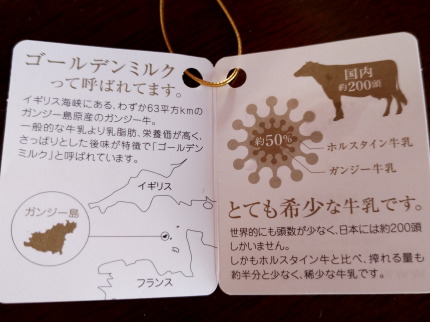 ゴールデンミルク
って呼ばれてます。
イギリス海峡にある、わずか63平方kmの
ガンジー島原産のガンジー牛。
一般的な牛乳より乳脂肪、栄養価が高く、
さっぱりとした後味が特徴で「ゴールデン
ミルク」と呼ばれています。
イギリス
ガンジー島
フランス
国内
約200頭
約50%
ホルスタイン牛乳
ガンジー牛乳
とても希少な牛乳です。
世界的にも頭数が少なく、日本には約200頭
しかいません。
しかもホルスタイン牛と比べ、搾れる量も
約半分と少なく、稀少な牛乳です。